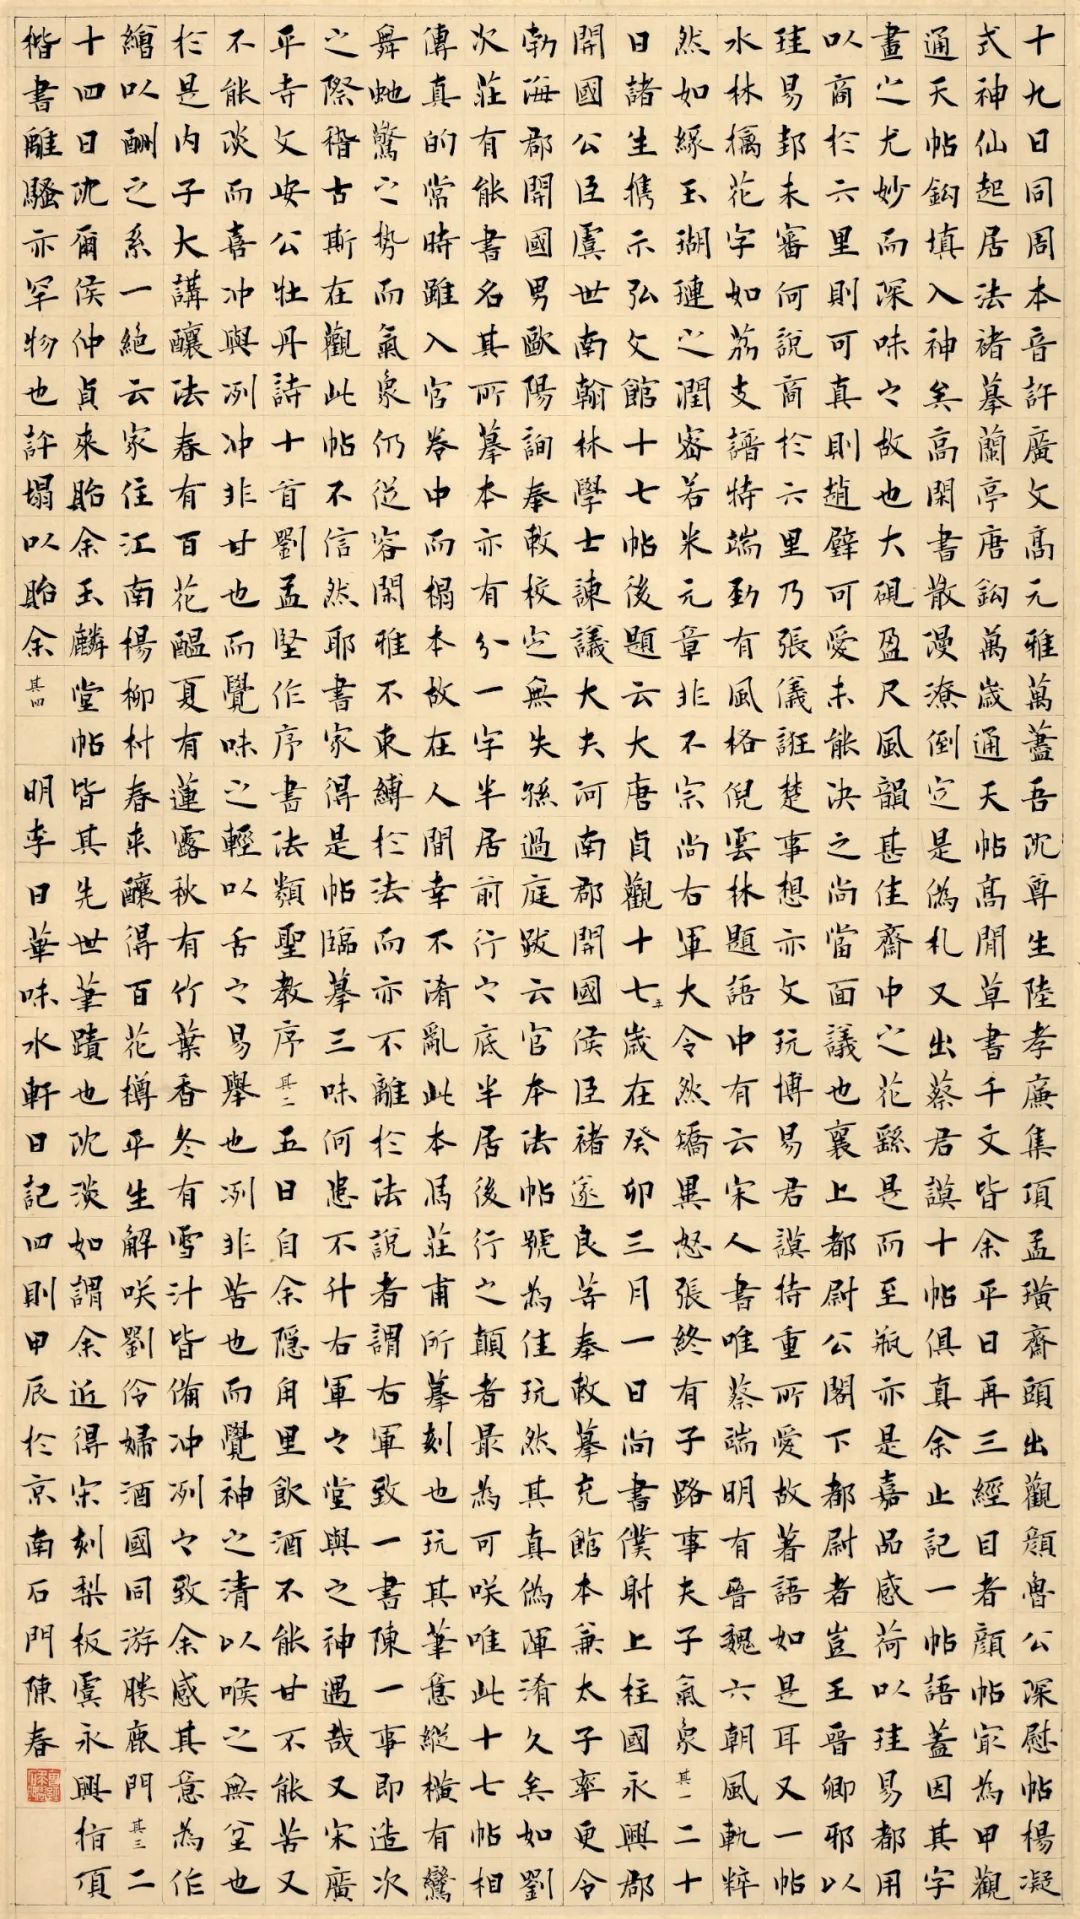 十九日同周本音許廣文高元雅萬藎吾沈尊生陸孝廉集項孟璜齋頭出觀顏魯公深慰帖楊凝
式神仙起居法褚摹蘭亭唐鈎萬歲通天帖高閒草書千文皆余平日再三經目者顏帖寂為甲觀
通天帖鈎填入神矣高閑書散漫潦倒定是偽札又出蔡君謨十帖俱真余止記一帖語蓋因其字
畫之尤妙而深味之故也大硯盈尺風韻甚佳齋中之花繇是而至瓶亦是嘉品感荷以珪易都用
以商於六里則可真則趙璧可愛未能決之尚當面議也襄上都尉公閣下都尉者豈王晉卿耶以
珪易邽未審何說商於六里乃張儀誑楚事想亦文玩博易君謨待重所愛故著語如是耳又一帖
水林檎花字如荔支譜特端勁有風格倪雲林題語中有云宋人書唯蔡端明有晉魏六朝風軌粹
然如綠玉瑚璉之潤密若米元章非不宗尚右軍大令然矯異怒張終有子路事夫子氣象其一二十
日諸生攜示弘文館十七帖後題云大唐貞觀十七年歲在癸卯三月一日尚書僕射上柱國永興郡
開國公臣虞世南翰林學士諫議大夫河南郡開國侯臣褚遂良等奉敕摹充館本兼太子率更令
勃海郡開國男歐陽詢奉敕校定無失孫過庭跋云官本法帖號為佳玩然其真偽渾淆久矣如劉
次莊有能書名其所摹本亦有分一字半居前行之底半居後行之顛者最為可咲唯此十七帖相
傳真的當時雖入官卷中而榻本故在人間幸不淆亂此本馮莊甫所摹刻也玩其筆意縱橫有鸞
舞虵驚之勢而氣象仍從容閑雅不束縛於法而亦不離於法說者謂右軍致一書陳一事即造次
之際稽古斯在觀此帖不信然耶書家得是帖臨摹三味何患不升右軍之堂與之神遇哉又宋廣
平寺文安公牡丹詩十首劉孟堅作序書法類聖教序其二五日自余隱甪里飲酒不能甘不能苦又
不能淡而喜冲與冽冲非甘也而覺味之輕以舌之易舉也冽非苦也而覺神之清以喉之無窒也
於是內子大講釀法春有百花醖夏有蓮露秋有竹葉香冬有雪汁皆備冲冽之致余感其意為作
繪以酬之系一絕云家住江南楊柳村春來釀得百花樽平生解咲劉伶婦酒國同游勝鹿門其三二
十四日沈爾侯仲貞來貽余玉麟堂帖皆其先世筆蹟也沈淡如謂余近得宋刻梨板虞永興指頂
楷書離騷亦罕物也許塌以貽余其四 明李日華味水軒日記四則甲辰於京南石門陳春